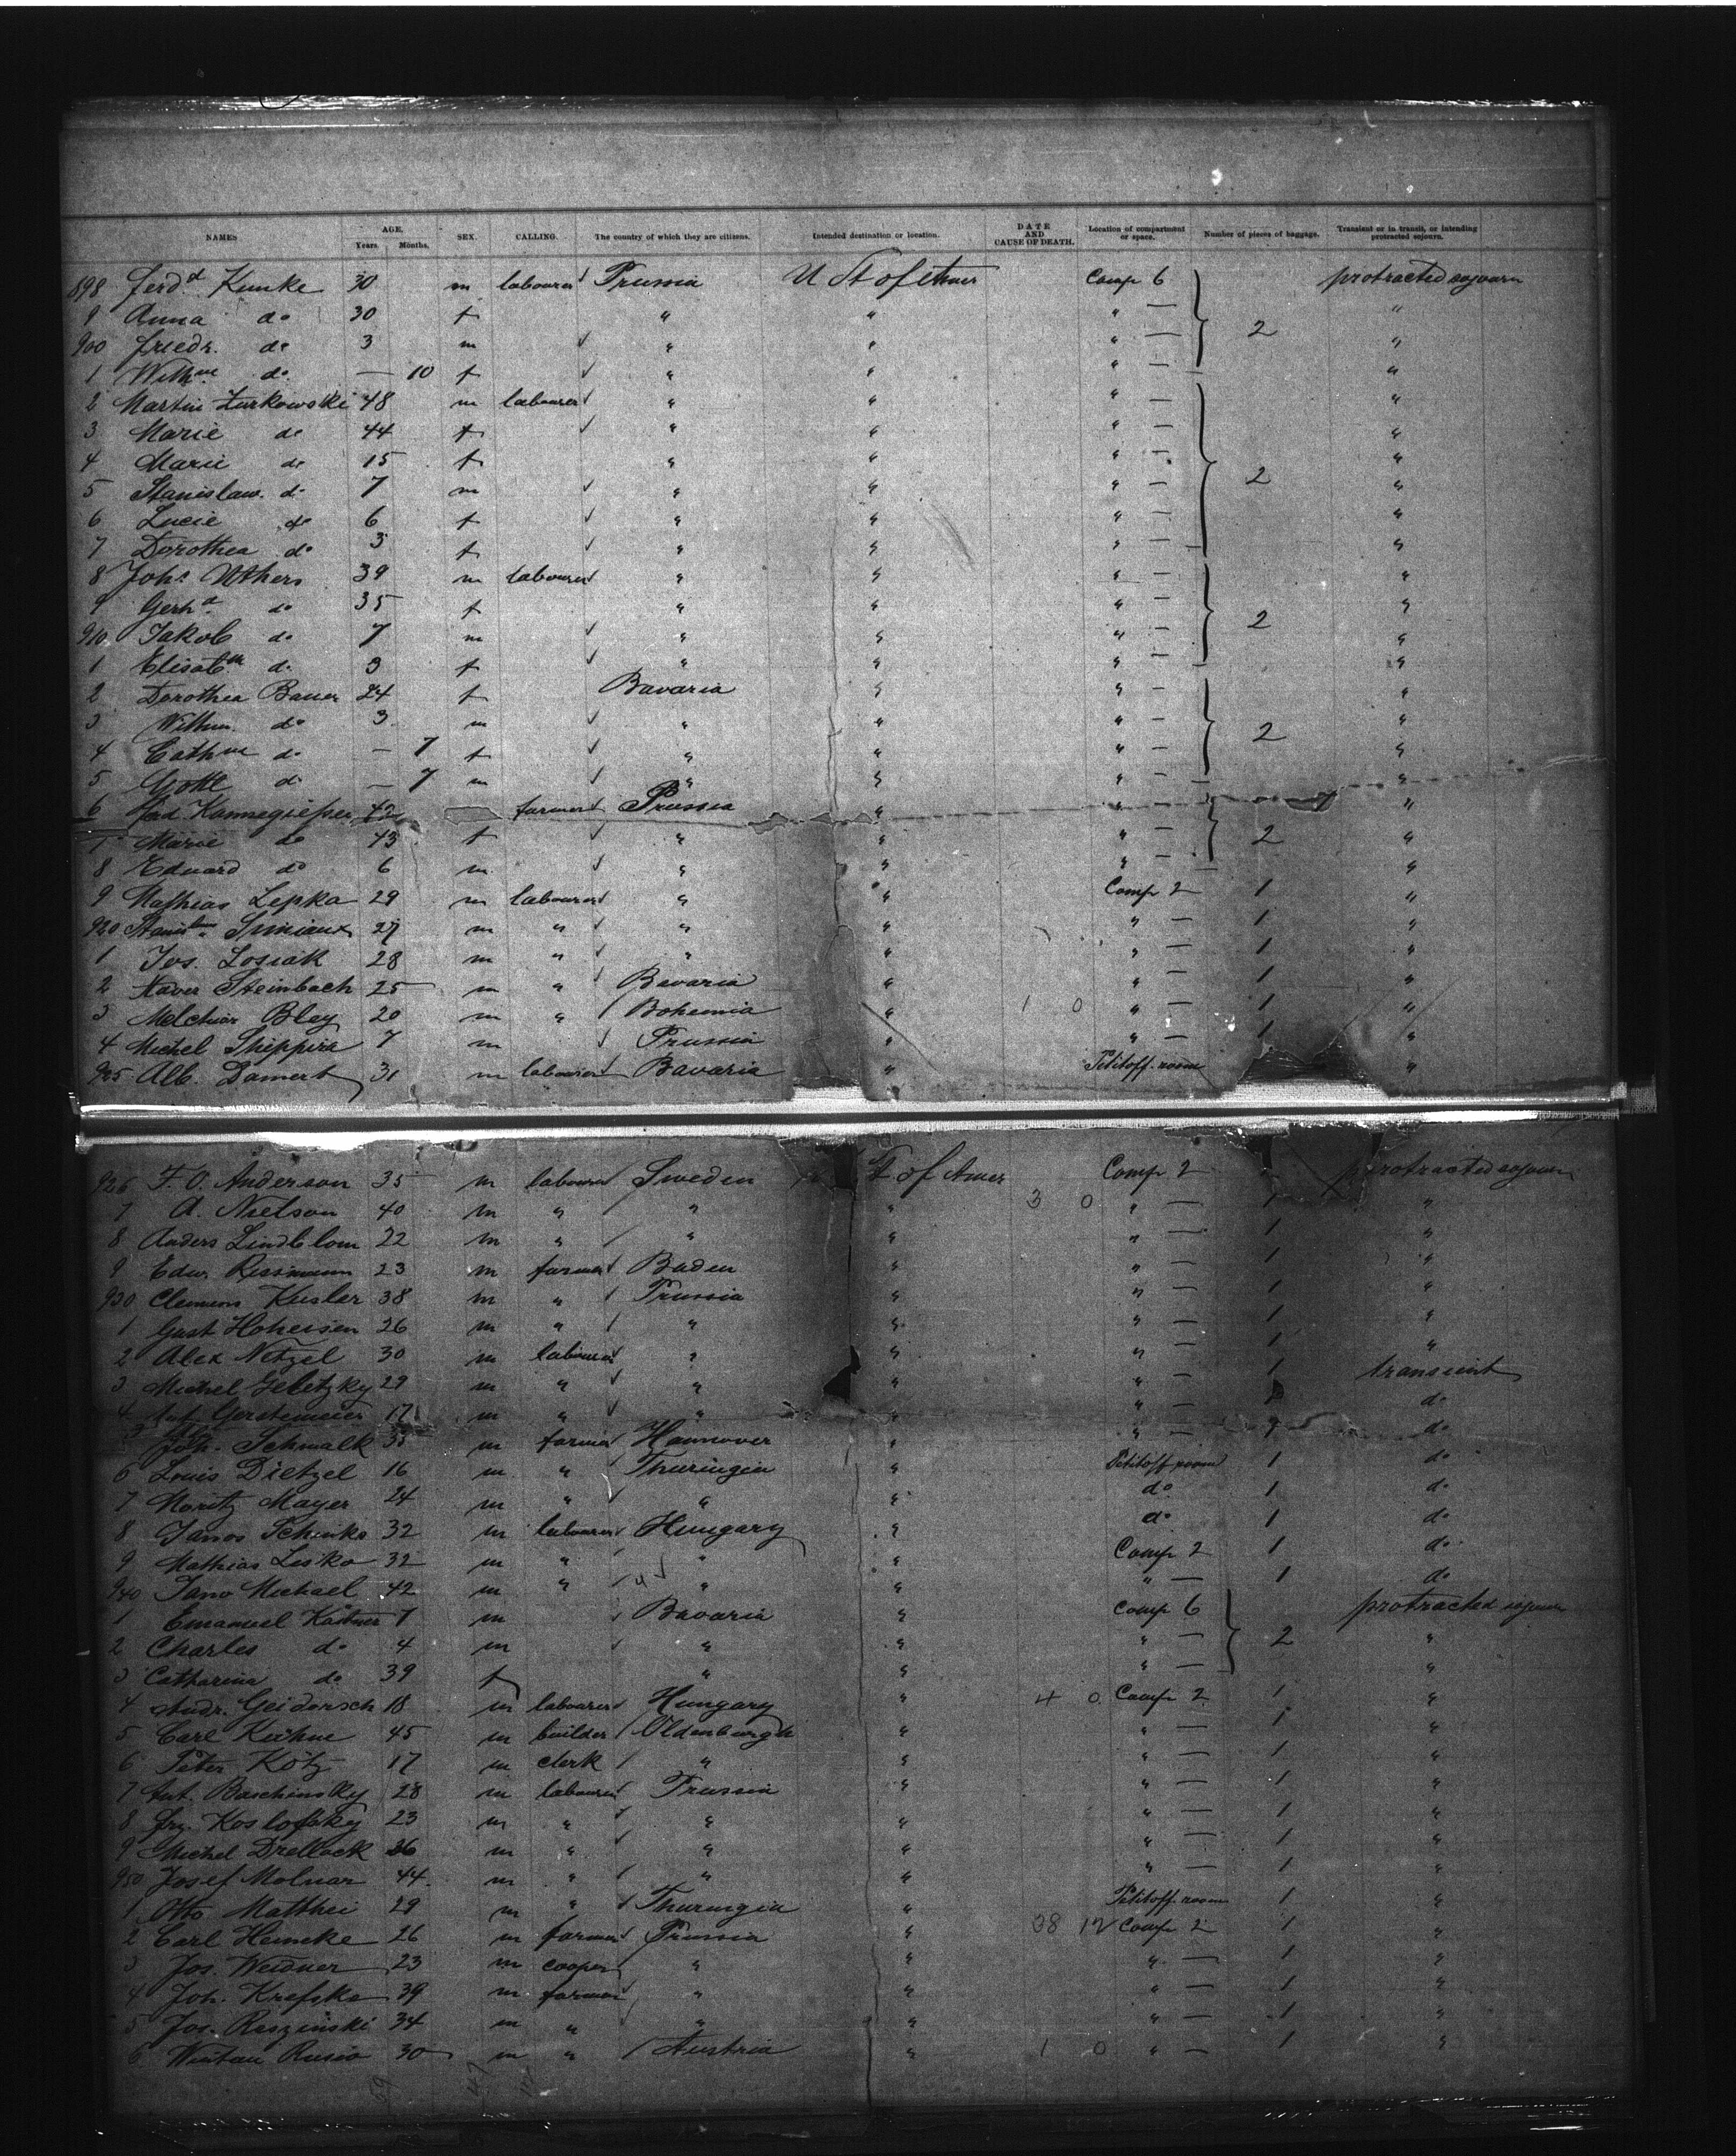 NAMES AGE. Years. Months. SEX. CALLING. The country of which they are citizens. Intended destination or location. DATE AND CAUSE OF DEATH. Location of compartment or space. Number of pieces of baggage. Transient or in transit, or intending protracted sojourn.
898 Ferd.d Kunke 30 m labourer Prussia U St of Amer Comp 6 protracted sojourn
9 Anna do 30 f " " " — 2 "
900 Friedr. do 3 m " " " — "
1 Wilhme do — 10 f " " " — "
2 Martin Zurkowski 48 m labourer " " " — "
3 Marie do 44 f " " " — "
4 Marie do 15 f " " " — "
5 Stanislaw. do 7 m " " " — 2 "
6 Lucie do 6 f " " " — "
7 Dorothea do 3 f " " " — "
8 Johs 39 m labourer " " " — "
9 Gerhd do 35 f " " " — "
910 Jakob do 7 m " " " — 2 "
1 Elisabth do 3 f " " " — "
2 Dorothea Bauer 24 f Bavaria " " — "
3 Wilhm do 3 m " " " — 2 "
4 Cathne do — 7 f " " " — "
5 Gottl do — 7 m " " " — "
6 Ferd. Kannegießer 42 farmer Prussia " " — "
7 Marie do 43 f " " " — 2 "
8 Eduard do 6 m " " " — "
9 Mathias Lepka 29 m labourer " " Comp 2 1 "
920 27 m " " " " — 1 "
1 Jos. Losiak 28 m " " " " — 1 "
2 Xaver Steinbach 25 m " Bavaria " " — 1 "
3 Melchior Bley 20 m " Bohemia " 1 0 " — 1 "
4 Michel 7 m Prussia " " — 1 "
925 Alb. Damert 31 m labourer Bavaria " room "
926 F. O. Anderson 35 m labourer Sweden St of Amer Comp 2 protracted sojourn
7 A. Nielson 40 m " " " 3 0 " — 1 "
8 Anders Lindblom 22 m " " " " — 1 "
9 Edw. Rissmann 23 m farmer Baden " " — 1 "
930 Clemens Keisler 38 m " Prussia " " — 1 "
1 Gust Hoheisen 26 m " " " " — 1 "
2 Alex Netzel 30 m labourer " " " — 1 "
3 Michel Geletzky 29 m " " " " — 1 transient
4 Ant. Gerstemeier 17 m " " " " — do
5 Joh. Schmalk 35 m farmer Hannover " " — 1 do
6 Louis Dietzel 16 m " Thuringia " room 1 do
7 Moritz Mayer 24 m " " " do 1 do
8 Janos Schinko 32 m labourer Hungary " do 1 do
9 Mathias Lesko 32 m " " " Comp 2 1 do
940 Jano Michael 42 m " " " " — 1 do
1 Emanuel Kastner 7 m Bavaria " Comp 6 protracted sojourn
2 Charles do 4 m " " " — 2 "
3 Catharina do 39 f " " " — "
4 Andr. Geidersch 18 m labourer Hungary " 4 0 Comp 2 1 "
5 Carl Kühne 45 m builder Oldenburgh " " — 1 "
6 Peter Kötz 17 m clerk " " " — 1 "
7 Ant. Baschinsky 28 m labourer Prussia " " — 1 "
8 Frz. Koslofsky 23 m " " " " — 1 "
9 Michel Drellack 36 m " " " " — 1 "
950 Josef Molnar 44 m " " " " — 1 "
1 Otto Matthei 29 m " Thuringia " room 1 "
2 Carl Heincke 26 m farmer Prussia " 38 12 Comp 2 1 "
3 Jos. Weidner 23 m cooper " " " — 1 "
4 Joh. Krefzke 39 m farmer " " " — 1 "
5 Jos. Reszinski 34 m " " " " — 1 "
6 Rusio 30 m " Austria " 1 0 " — 1 "